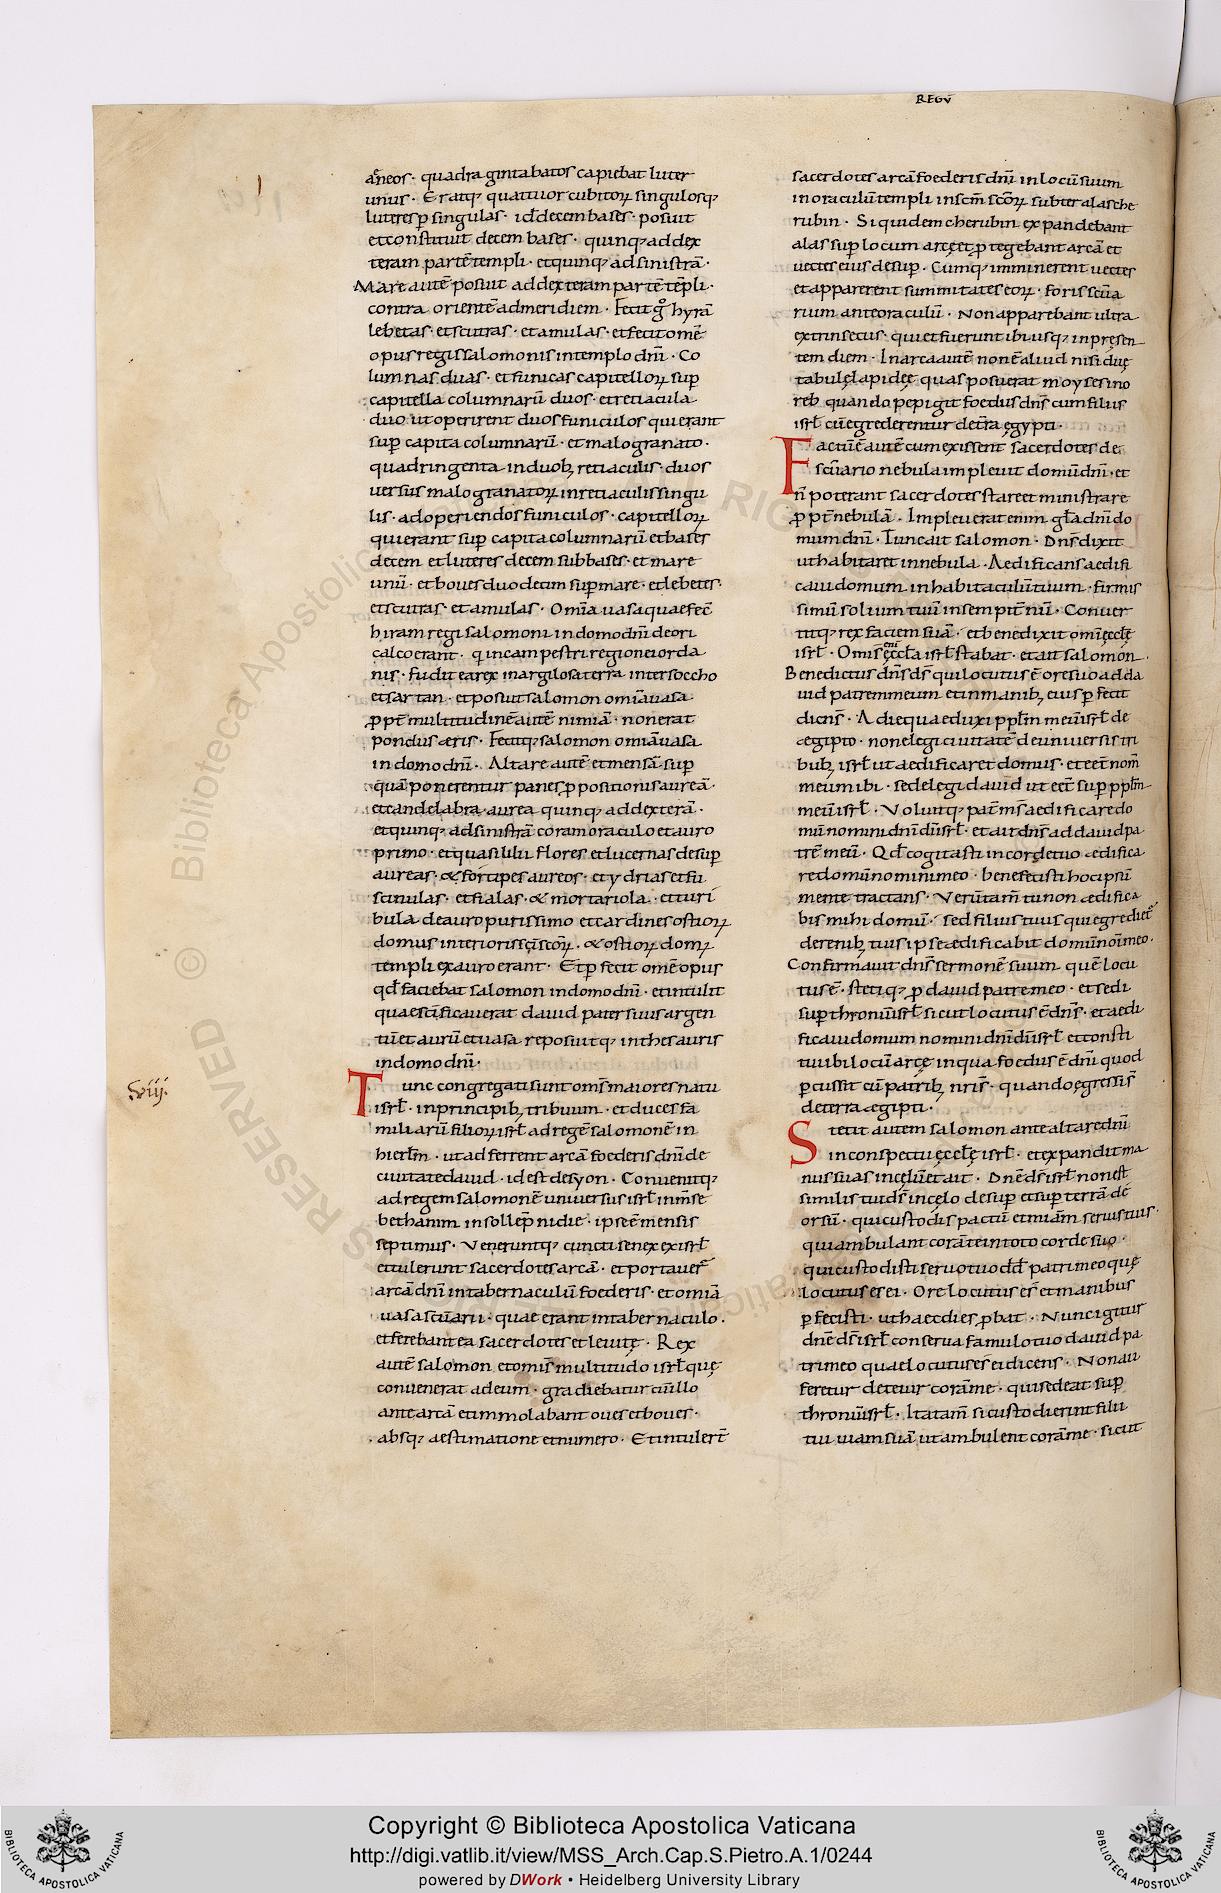 REGṼ
aͤneos · quadraginta batos capiebat luter
unus · Eratq; quattuor cubitoꝝ singulosq;
luteres ꝑ singulas · id decem bases · posuit
et constituit decem bases · quinq; ad dex
teram partē templi · et quinq; ad sinistrā ·
Mare autē posuit ad dexteram partē tēpli ·
contra orientē ad meridiem · Fecit gͦ hyrā
lebetas · et scutras · et amulas · et fecit omē
opus regis salomonis in templo dnī · Co
lumnas duas · et funicas capitelloꝝ suꝑ
capitella columnarū duos · et retiacula
duo ut operirent duos funiculos qui erant
suꝑ capita columnarū · et malogranato ·
quadringenta in duob; retiaculis · duos
uersus malogranatoꝝ in retiaculis singu
lis · ad operiendos funiculos · capitelloꝝ
qui erant suꝑ capita columnarū et bases
decem et luteres decem sub bases · et mare
unū · et boues duodecim suꝑ mare · et lebetes ·
et scutras · et amulas · Omīa uasa quae fec̄
hiram regi salomoni in domo dnī de ori
calco erant · q in campestri regione iorda
nis · fudit ea rex in argilosa terra inter soccho
et sartan · et posuit salomon omīa uasa
ꝓpt̄ multitudinē autē nimiā · non erat
pondus aeris · Fecitq; salomon omīa uasa
in domo dnī · Altare autē et mensā suꝑ
quā ponerentur panes ꝓpositionis aureā ·
et candelabra · aurea quinq; ad dexterā ·
et quinq; ad sinistrā coram oraculo et auro
primo · et quasi lilii flores et lucernas desuꝑ
aureas · & forcipes aureos · et ydrias et fu
scinulas · et fialas · & mortariola · et turi
bula de auro purissimo et cardines ostioꝝ
domus interioris sc̄i sc̄oꝝ · & ostioꝝ domꝰ
templi ex auro erant · Et ꝑfecit omē opus
qd̄ faciebat salomon in domo dnī · et intulit
quae sc̄ificauerat dauid pater suus argen
tū et aurū et uasa reposuitq; in thesauris
in domo dnī ·
.viij.
Tunc congregati sunt omīs maiores natu
isrł · in principib; tribuum · et duces fa
miliarū filioꝝ isrł ad regē salomonē in
hierłm · ut adferrent arcā foederis dnī de
ciuitate dauid · id est de syon · Conuenitq;
ad regem salomonē uniuersus isrł in mēse
bethanim in sollepni die · ipse ē mensis
septimus · Veneruntq; cuncti senex ex isrł
et tulerunt sacerdotes arcā · et portauer̄
arcā dnī in tabernaculū foederis · et omīa
uasa sc̄uarii · quae erant in tabernaculo ·
et ferebant ea sacerdotes et leuitę · Rex
autē salomon et omīs multitudo isrł quę
conuenerat ad eum · gradiebatur cū illo
ante arcā et immolabant oues et boues ·
absq; aestimatione et numero · Et intuler̄t
sacerdotes arcā foederis dnī in locū suum
in oraculū templi in sc̄m sc̄oꝝ subter alas che
rubin · Siquidem cherubin expandebant
alas suꝑ locum arcę et ꝓtegebant arcā et
uectes eius desuꝑ · Cumq; imminerent uectes
et apparerent summitates eoꝝ · foris sc̄ua
rium ante oraculū · Non apparebant ultra
extrinsecus · qui et fuerunt ibi usq; in presen
tem diem · In arca autē non ē aliud nisi duę
tabulę lapideę quas posuerat moyses in o
reb quando pepigit foedus dns̄ cum filiis
isrł cū egrederentur de t̄ra ęgypti ·
Factū ē autē cum exissent sacerdotes de
sc̄uario nebula impleuit domū dnī · et
n̄ poterant sacerdotes stare et ministrare
ꝓpt̄ nebulā · Impleuerat enim gła dnī do
mum dnī · Tunc ait salomon · Dns̄ dixit
ut habitaret in nebula · Aedificans aedifi
caui domum in habitaculū tuum · firmis
simū solium tuū in sempit̄nū · Conuer
titq; rex faciem suā · et benedixit omī ęcclę
isrł · Omīs ęccła isrł stabat · et ait salomon ·
Benedictus dns̄ ds̄ qui locutus ē ore suo ad da
uid patrem meum et in manib; eius ꝑfecit
dicns̄ · A die qua eduxi pplm̄ meū isrł de
aegipto · non elegi ciuitatē de uniuersis tri
bub; isrł ut aedificaret domus · et eet̄ nom̄
meum ibi · sed elegi dauid ut eet̄ suꝑ pplm̄
meū isrł · Voluitq; pat̄ ms̄ aedificare do
mū nomini dnī dī isrł · et ait dns̄ ad dauid pa
trē meū · Qd̄ cogitasti in corde tuo aedifica
re domū nomini meo · bene fecisti hoc ipsū
mente tractans · Verūtam̄ tu non aedifica
bis mihi domū · sed filius tuus qui egrediet̄
de renib; tuis ipse aedificabit domū noī meo ·
Confirmauit dns̄ sermonē suum quē locu
tus ē · stetiq; ꝓ dauid patre meo · et sedi
suꝑ thronū isrł sicut locutus ē dns̄ · et aedi
ficaui domum nomini dnī dī isrł et consti
tui ibi locū arcę in qua foedus ē dnī quod
ꝑcussit cū patrib; nrīs · quando ęgressi s̄
de terra aegipti ·
Stetit autem salomon ante altare dnī
in conspectu ęcclę isrł · et expandit ma
nus suas in cęlū et ait · Dnē ds̄ isrł non est
similis tui ds̄ in cęlo desuꝑ et suꝑ terrā de
orsū · qui custodis pactū et miām seruis tuis ·
qui ambulant corā te in toto corde suo ·
qui custodisti seruo tuo dd̄ patri meo quę
locutus es ei · Ore locutus es et manibus
ꝑfecisti · ut haec dies ꝓbat · Nunc igitur
dnē ds̄ isrł conserua famulo tuo dauid pa
tri meo quae locutus es ei dicens · Non au
feretur de te uir corā me · qui sedeat suꝑ
thronū isrł · Ita tam̄ si custodierint filii
tui uiam suā ut ambulent corā me · sicut
© Biblioteca Apostolica Vaticana ALL RIGHTS RESERVED
Copyright © Biblioteca Apostolica Vaticana
http://digi.vatlib.it/view/MSS_Arch.Cap.S.Pietro.A.1/0244
powered by DWork • Heidelberg University Library
BIBLIOTECA APOSTOLICA VATICANA
BIBLIOTECA APOSTOLICA VATICANA